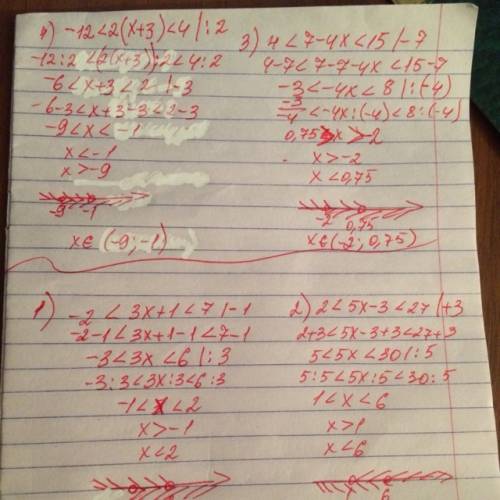 4) -12<2(x+3)<4 |:2
-12:2<2(x+3):2<4:2
-6<x+3<2 |-3
-6-3<x+3-3<2-3
-9<x<-1
x<-1
x>-9
-9 -1
x∈(-9;-1)
3) 4<7-4x<15 |-7
4-7<7-7-4x<15-7
-3<-4x<8 |:(-4)
-3/-4<-4x:(-4)<8:(-4)
0,75>x>-2
x>-2
x<0,75
-2 0,75
x∈(-2; 0,75)
1) -2<3x+1<7 |-1
-2-1<3x+1-1<7-1
-3<3x<6 |:3
-3:3<3x:3<6:3
-1<x<2
x>-1
x<2
2) 2<5x-3<27 |+3
2+3<5x-3+3<27+3
5<5x<30 |:5
5:5<5x:5<30:5
1<x<6
x>1
x<6
6